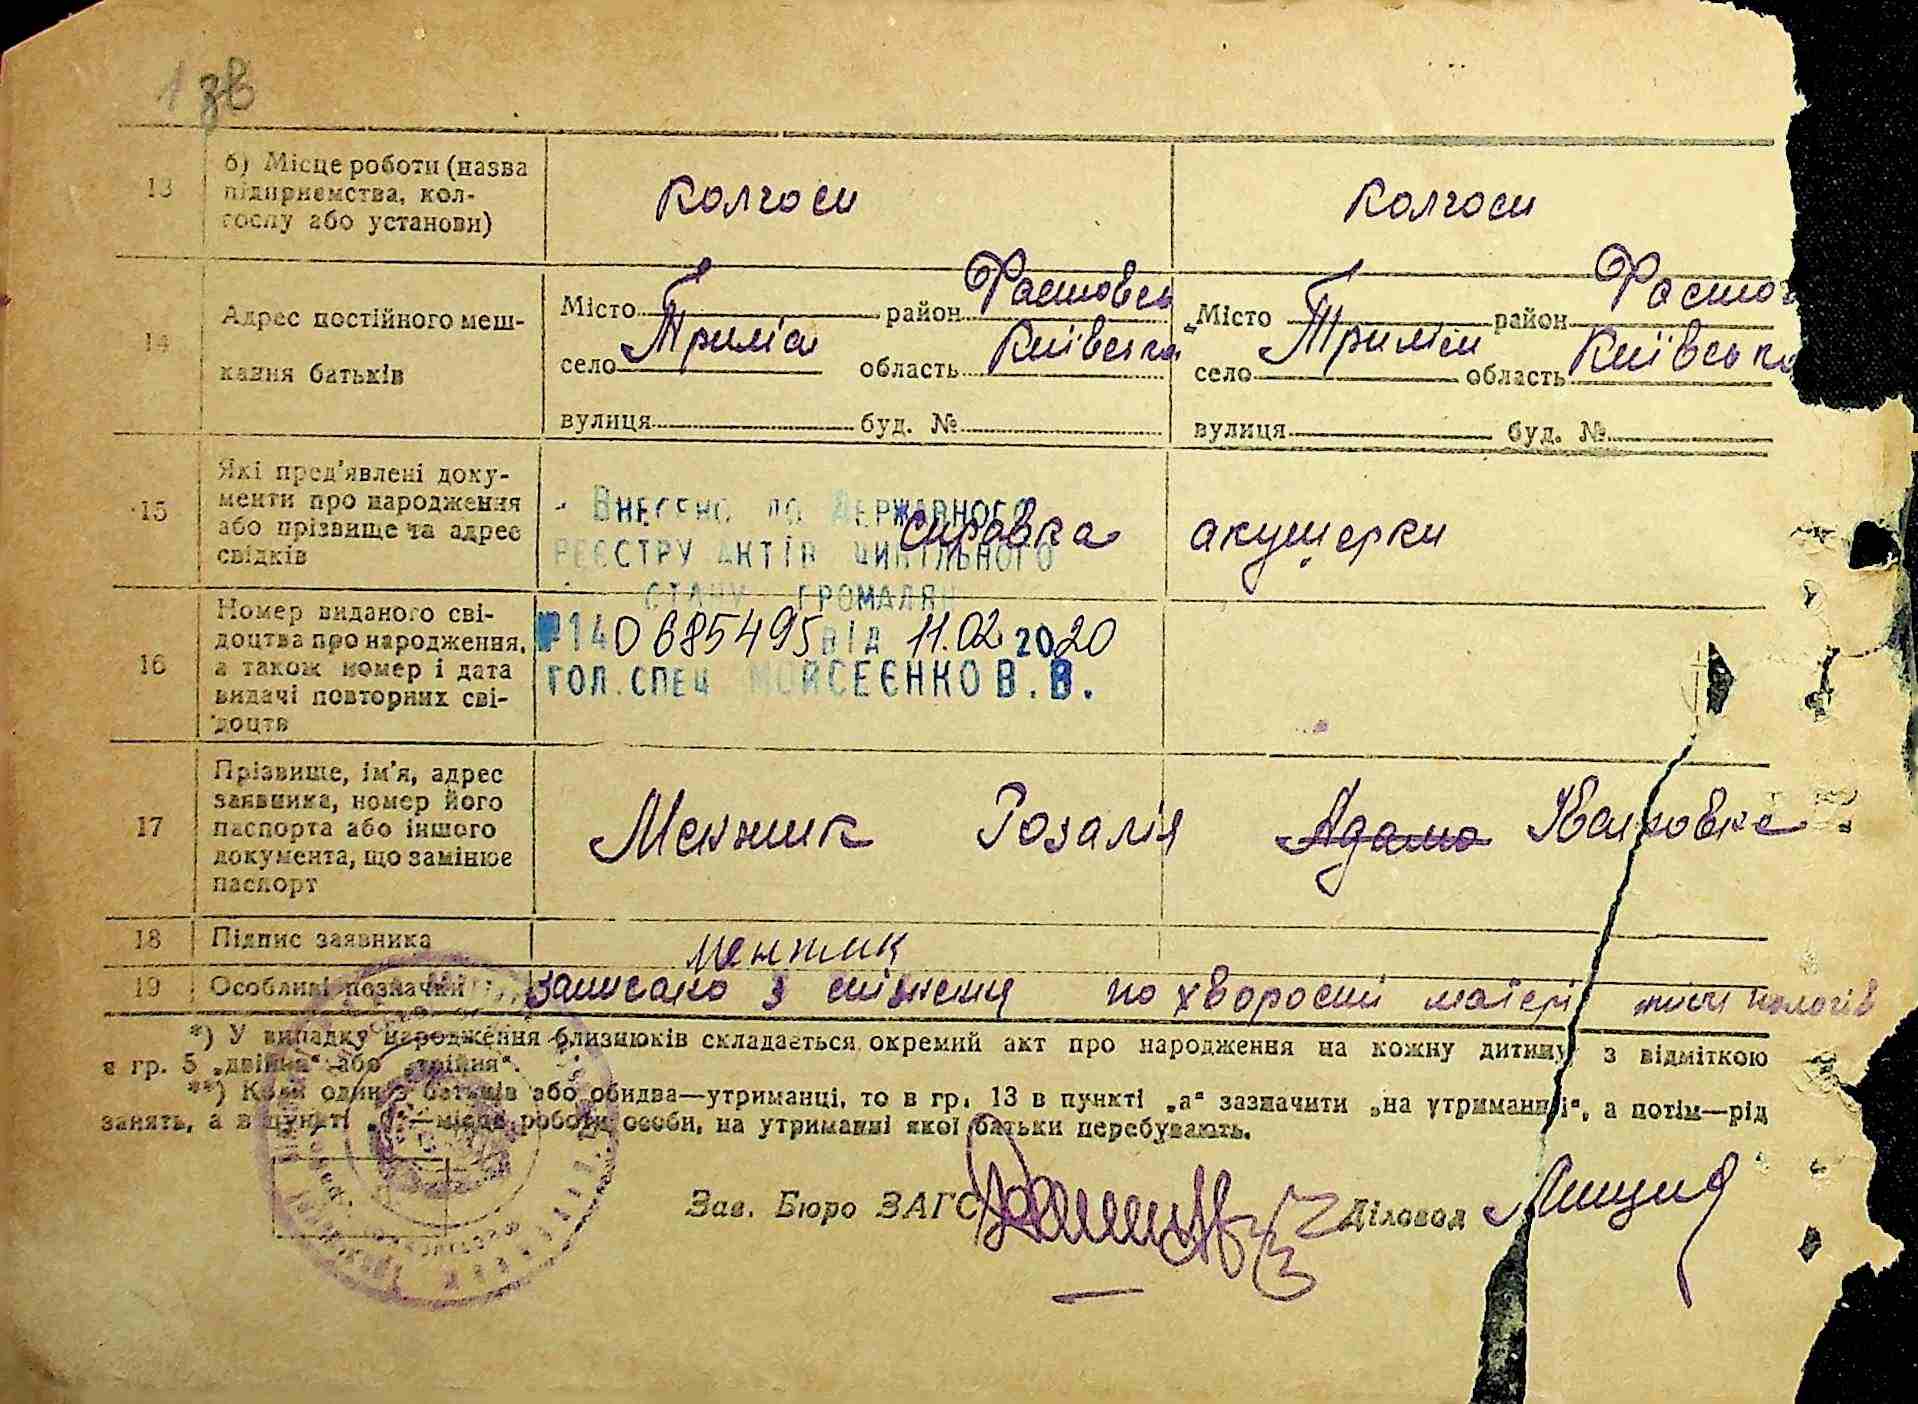 1зв
13 б) Місце роботи (назва підприємства, колгоспу або установи) колгосп колгосп
14 Адрес постійного мешкання батьків
Місто район Фастовсь Місто район Фастов
село Триліси область Київська село Триліси область Київська
вулиця буд. № вулиця буд. №
15 Які пред'явлені документи про народження або прізвище та адрес свідків справка акушерки
Внесено до Державного
реєстру актів цивільного
стану громадян
№140685495 від 11.02 2020
гол. спец Мойсеєнко В. В.
16 Номер виданого свідоцтва про народження, а також номер і дата видачі повторних свідоцтв
17 Прізвище, ім'я, адрес заявника, номер його паспорта або іншого документа, що замінює паспорт Розалія Адамо
18 Підпис заявника
19 Особливі позначки записано з по хворости матері після пологів
*) У випадку народження близнюків складається окремий акт про народження на кожну дитину з відміткою
в гр. 5 „двійня“ або „трійня“.
**) Коли один з батьків або обидва—утриманці, то в гр. 13 в пункті „а“ зазначити „на утриманні“, а потім—рід
занять, а в пункті „б“—місце роботи особи, на утриманні якої батьки перебувають.
Зав. Бюро ЗАГС Діловод